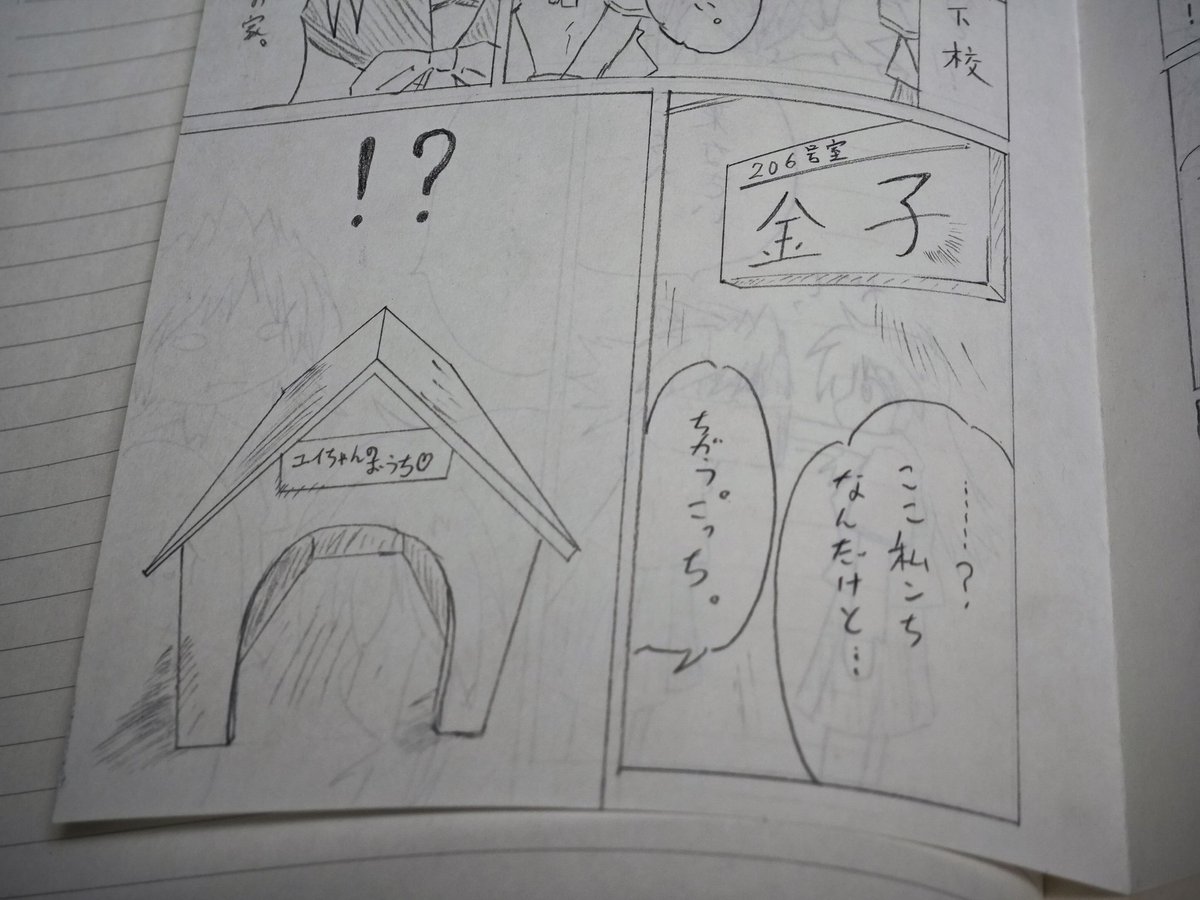 下校
い。
家。
206号室
金子
……?
ここ私ンち
なんだけど…
ちがう。こっち。
!?
ユイちゃんの
おうち♡